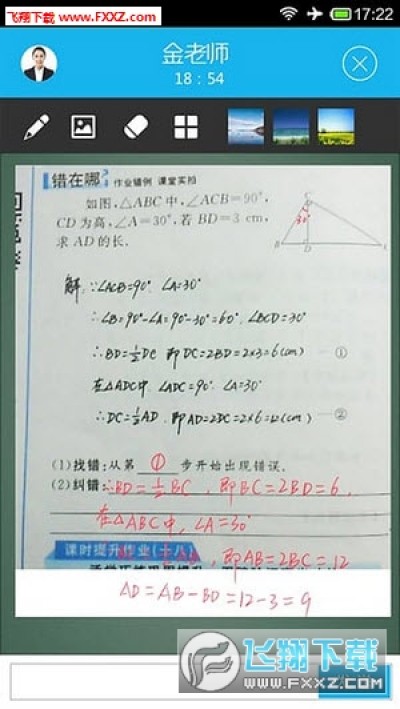 飞翔下载 www.FXXZ.COM
17:22
金老师
18:54
错在哪? 作业错例 课堂实拍
如图,△ABC中,∠ACB=90°,
CD为高,∠A=30°,若BD=3 cm,
求AD的长.
C
30°
B
D
解:∵∠ACB=90°, ∠A=30°
∴∠B=90°-∠A=90°-30°=60°, ∠BCD=30°
∴BD=½DC 即DC=2BD=2×3=6(cm) ——①
在△ADC中, ∠ADC=90°, ∠A=30°
∴DC=½AD, 即AD=2DC=2×6=12(cm) ——②
(1)找错:从第 ① 步开始出现错误.
(2)纠错: ∴BD=½BC, 即BC=2BD=6,
在△ABC中, ∠A=30°
课时提升作业(十八)
即AB=2BC=12
AD=AB-BD=12-3=9
飞翔下载
WWW.FXXZ.COM